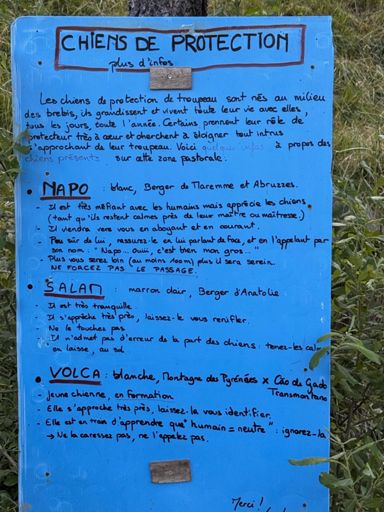 CHIENS DE PROTECTION
plus d'infos
Les chiens de protection de troupeau sont nés au milieu
des brebis, ils grandissent et vivent toute leur vie avec elles
tous les jours, toute l'année. Certains prennent leur rôle de
protecteur très à cœur et cherchent à éloigner tout intrus
s'approchant de leur troupeau. Voici quelques infos à propos des
chiens présents sur cette zone pastorale.
• NAPO : blanc, Berger de Maremme et Abruzzes.
- Il est très méfiant avec les humains mais apprécie les chiens
(tant qu'ils restent calmes près de leur maître ou maîtresse.)
- Il viendra vers vous en aboyant et en courant.
- Peu sûr de lui, rassurez-le en lui parlant de face, et en l'appelant par
son nom : "Napo... ouiii, c'est bien mon gros..."
- Plus vous serez loin (au moins 100m) plus il sera serein.
NE FORCEZ PAS LE PASSAGE.
• SALAM : marron clair, Berger d'Anatolie
- Il est très tranquille.
- Il s'approche très près, laissez-le vous renifler.
- Ne le touchez pas
- Il n'admet pas d'erreur de la part des chiens : tenez-les calmes
en laisse, au sol
• VOLCA : blanche, Montagne des Pyrénées x Cão de Gado
Transmontano
- Jeune chienne, en formation
- Elle s'approche très près, laissez-la vous identifier.
- Elle est en train d'apprendre que "humain = neutre" : ignorez-la
→ Ne la caressez pas, ne l'appelez pas.
Merci !